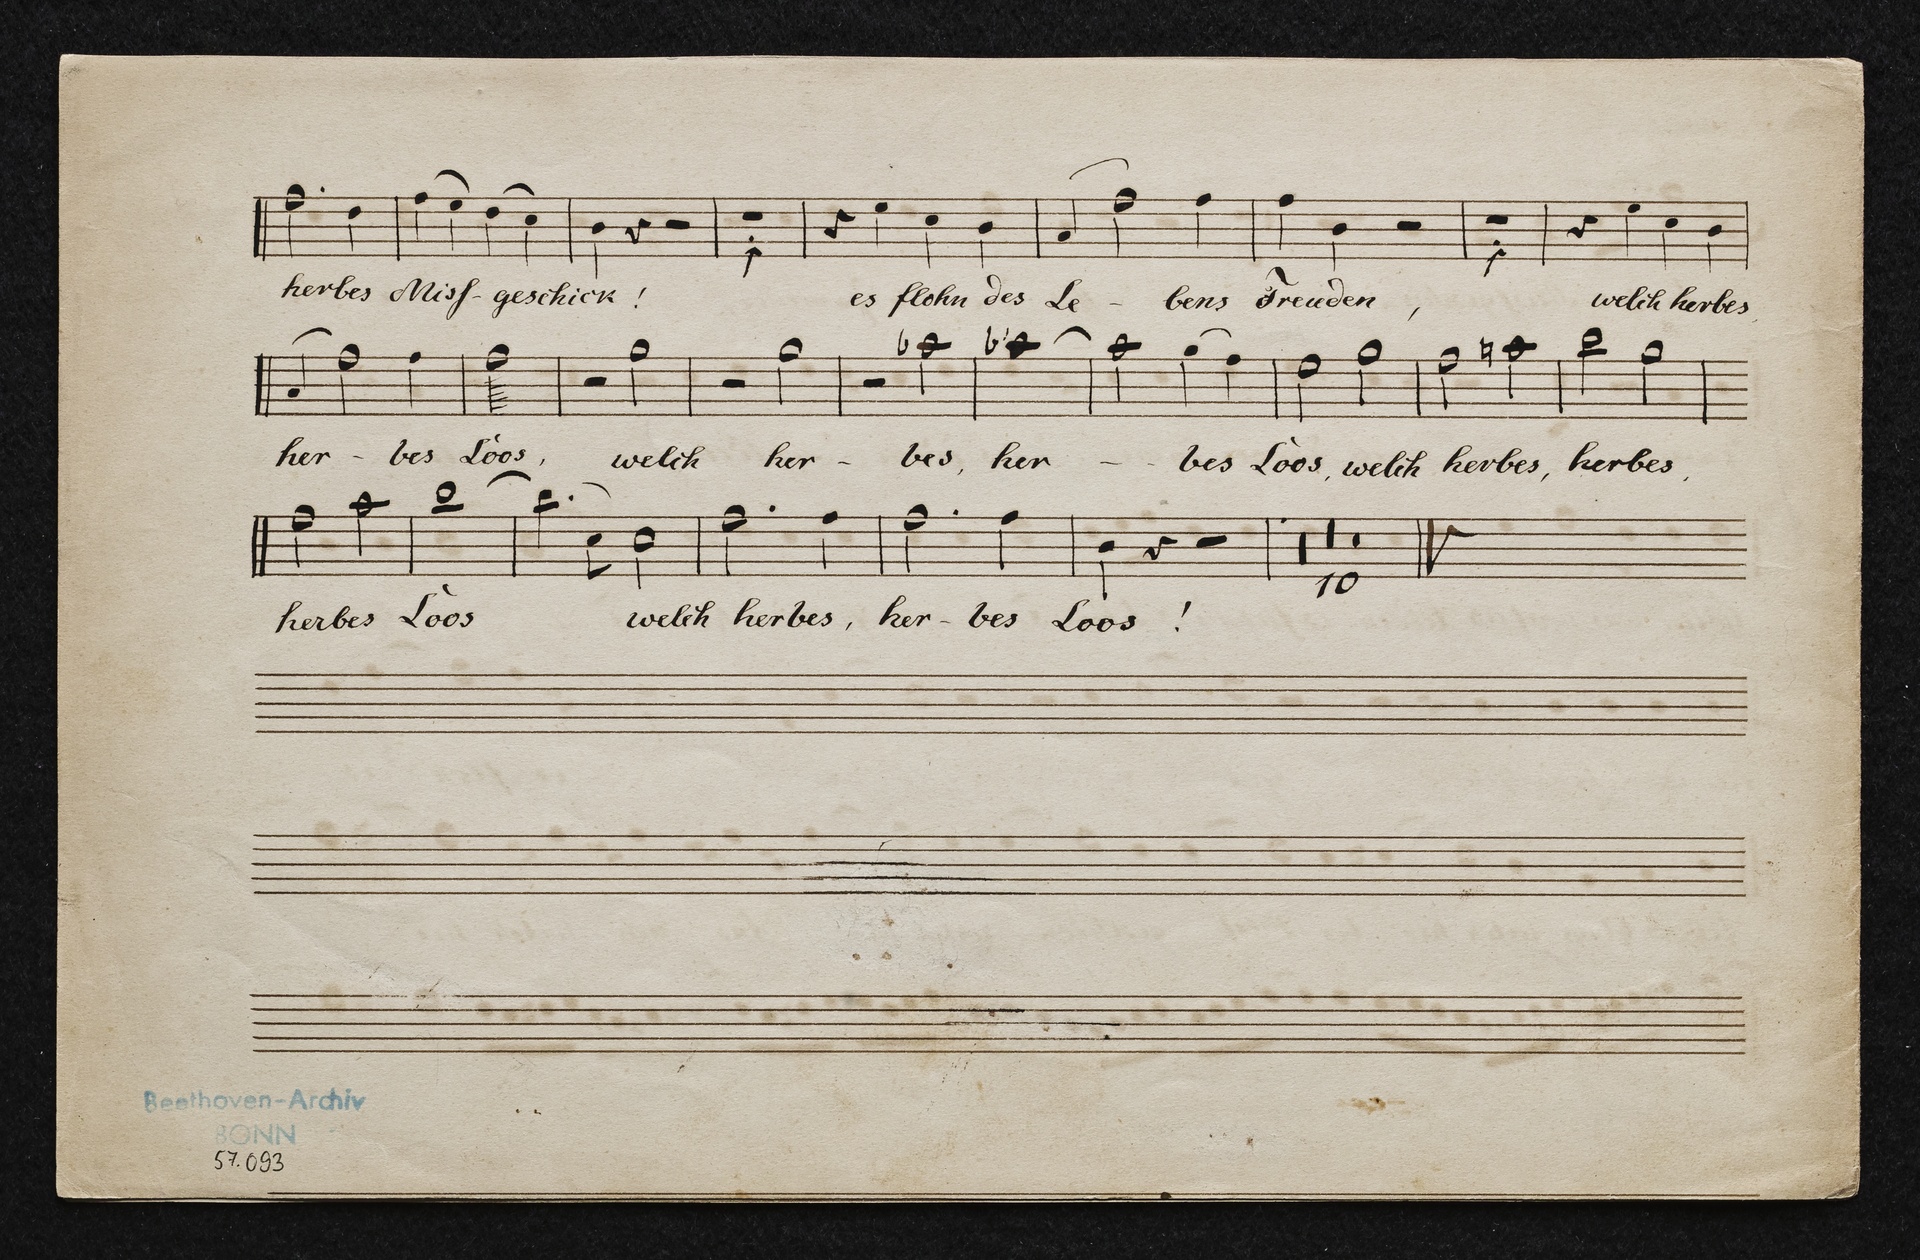 herbes Miss- geschick ! es flohn des Le - bens Freuden , welch herbes
her - bes Loos, welch her - bes, her - - bes Loos, welch herbes, herbes,
herbes Loos welch herbes, her - bes Loos !
10
Beethoven-Archiv
BONN
57.093